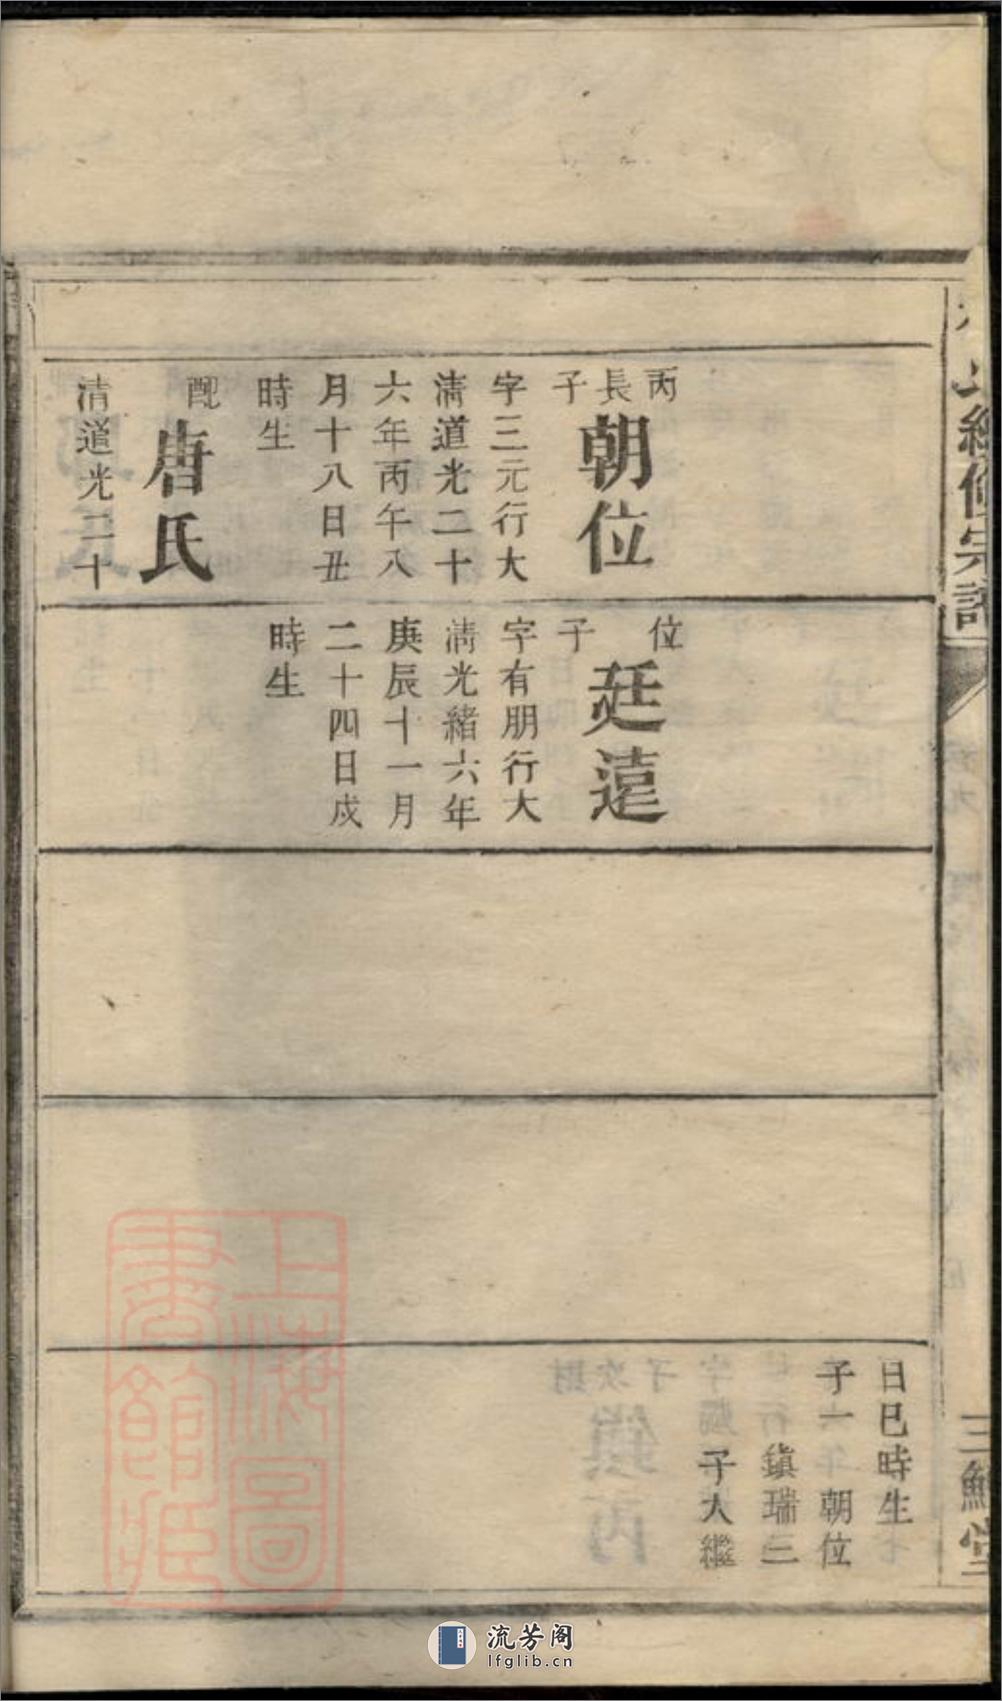 續修宗譜
三鱣堂
丙長子
朝位
字三元行大
清道光二十
六年丙午八
月十八日丑
時生
配
唐氏
清道光二十
位子
廷遠
字有朋行大
清光緒六年
庚辰十一月
二十四日戌
時生
日巳時生
子一朝位
鎮瑞三
子入繼
上海圖書館藏
流芳阁
lfglib.cn